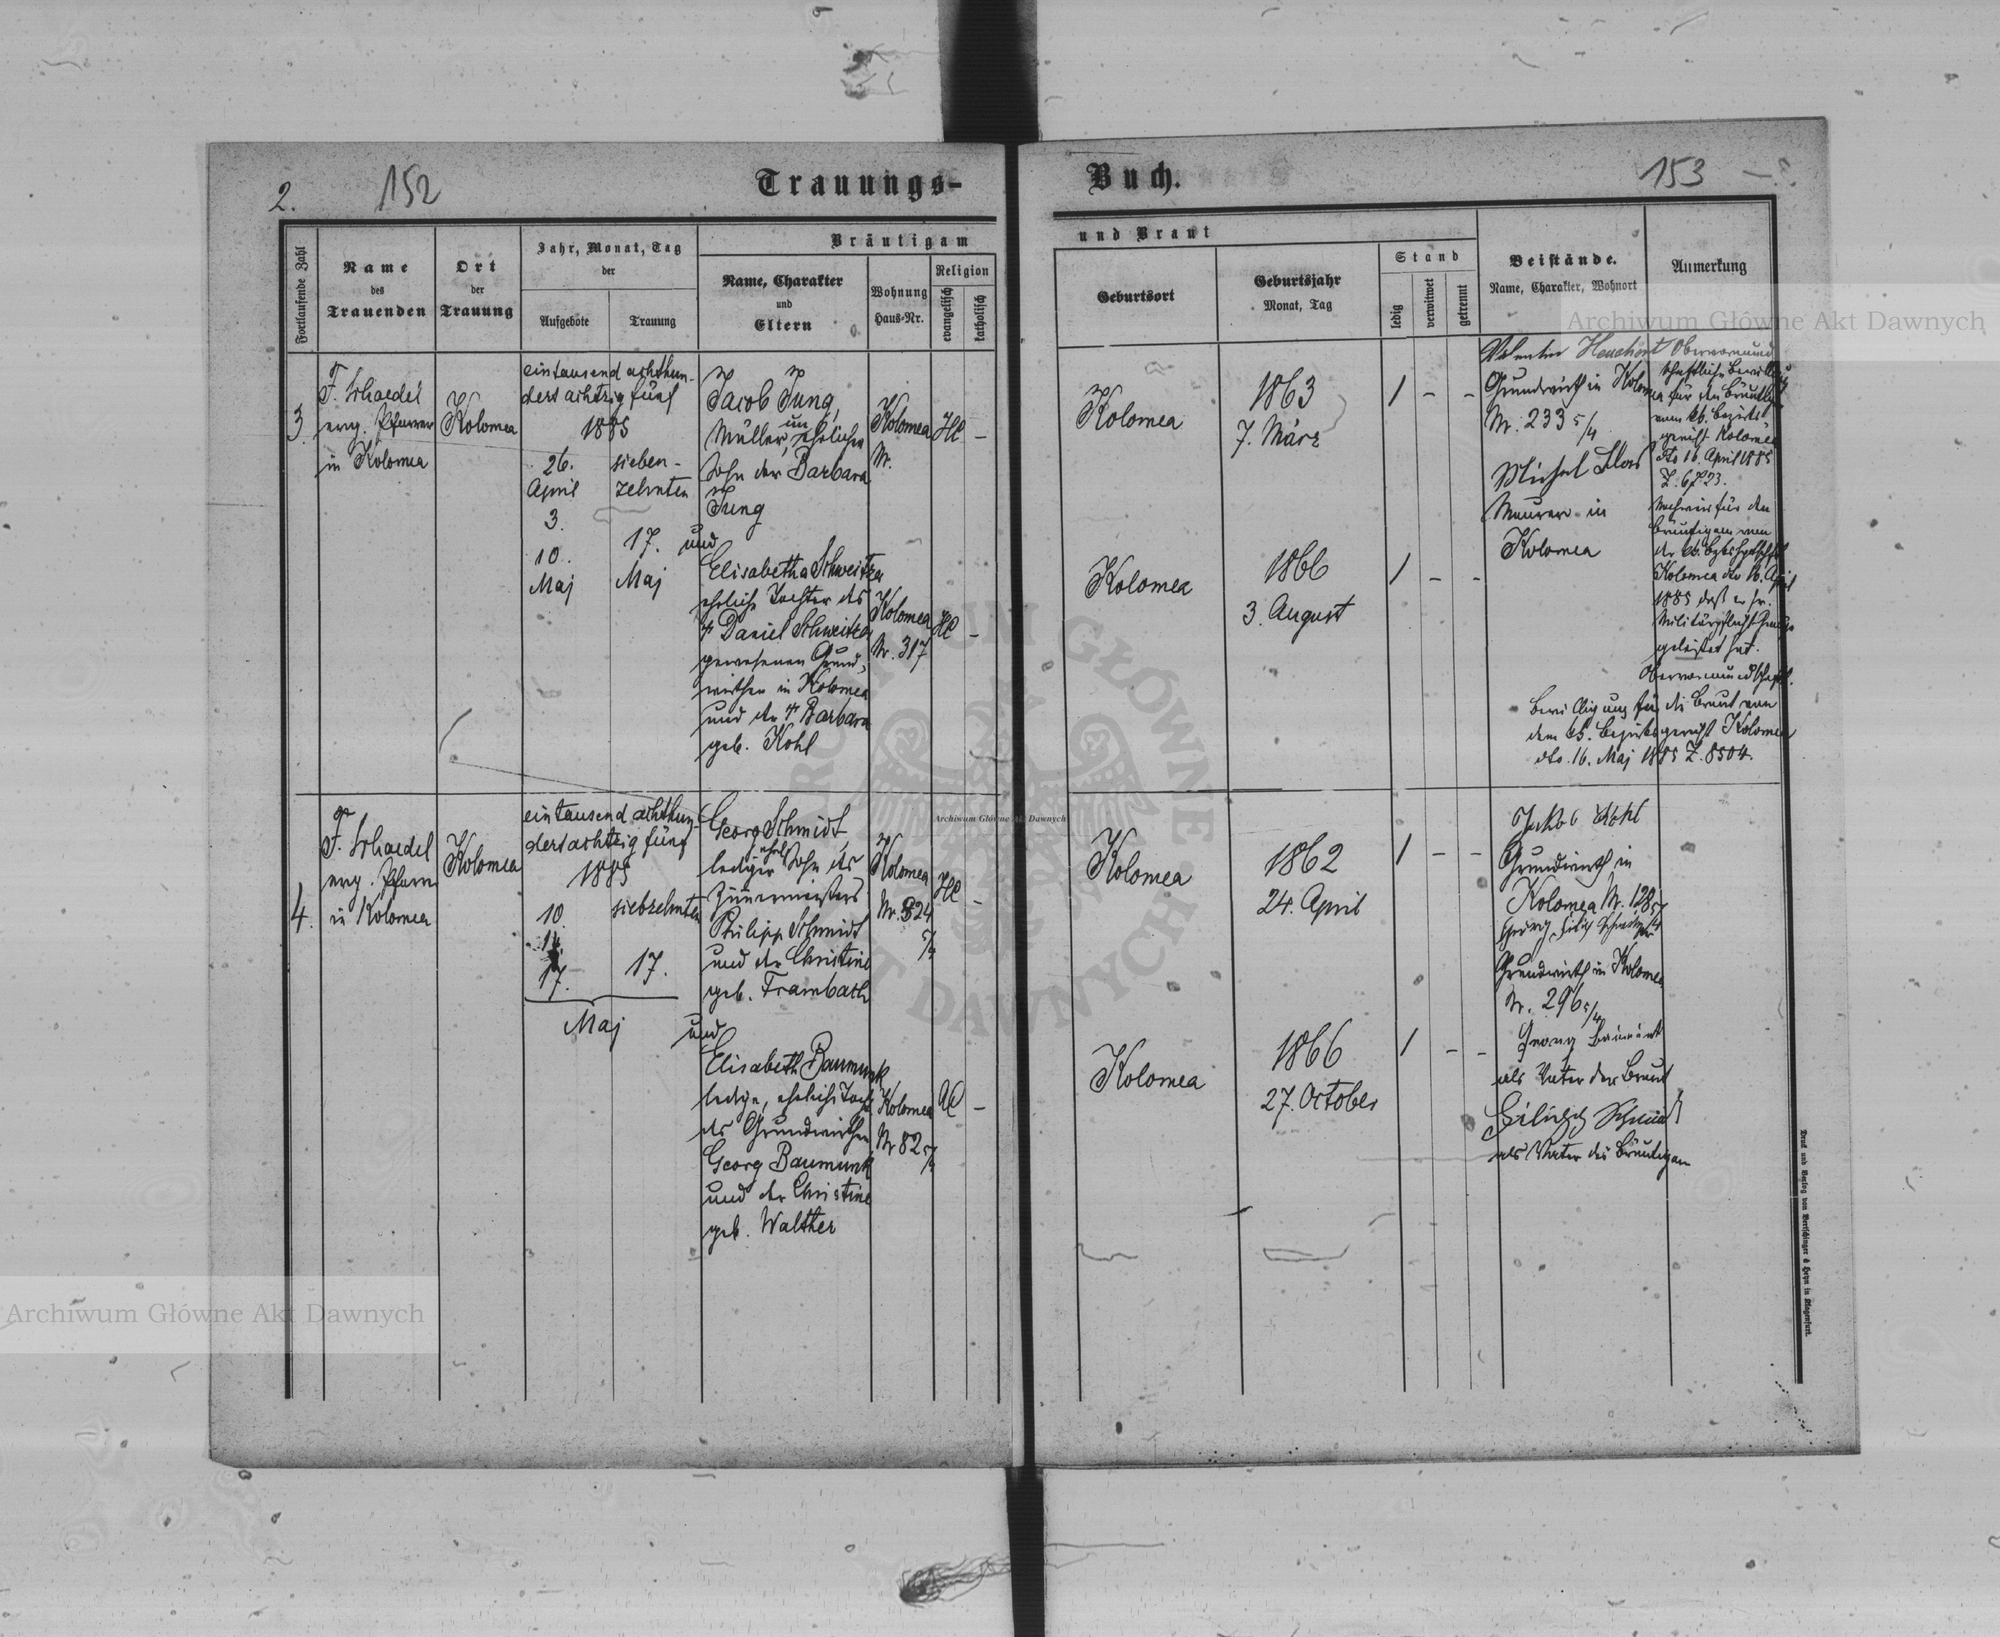 2. 152
Trauungs-
Fortlaufende Zahl
Name
des
Trauenden
Ort
der
Trauung
Jahr, Monat, Tag
der
Aufgebote
Trauung
Bräutigam
Name, Charakter
und
Eltern
Wohnung
Haus-Nr.
Religion
evangelisch
katholisch
3.
F. Schaedel
evg. Pfarrer
in Kolomea
Kolomea
eintausend achthun-
dert achtzig fünf
1885
26.
April
3.
10.
Maj
sieben-
zehnten
17.
Maj
Jacob Jung,
Müller, unehelicher
Sohn der Barbara
Jung
und
Elisabetha Schweitzer
eheliche Tochter des
† Daniel Schweitzer
gewesenen Grund-
wirthen in Kolomea
und der † Barbara
geb. Kohl
Kolomea
Nr.
HC
–
Kolomea
Nr. 317
HC
–
4.
F. Schaedel
evg. Pfarrer
in Kolomea
Kolomea
eintausend achthun-
dert achtzig fünf
1885
10.
17.
siebzehnten
17.
Maj
Georg Schmidt,
lediger ehel. Sohn des
Zimmermeisters
Philipp Schmidt
und der Christine
geb. Trambach
und
Elisabeth Baumunk
ledige, eheliche Toch
des Grundwirthen
Georg Baumunk
und der Christine
geb. Walther
Kolomea
Nr. 324
HC
–
Kolomea
Nr 82
AC
–
Buch.
153
und Braut
Geburtsort
Geburtsjahr
Monat, Tag
Stand
ledig
verwitwet
getrennt
Beistände.
Name, Charakter, Wohnort
Anmerkung
Kolomea
1863
7. März
/ – –
Kolomea
1866
3. August
/ – –
Grundwirth in Kolomea
Nr. 233 5/4
Michael
Maurer in
Kolomea
Obervormund
schaftliche Bewillig
für den Bräutig
vom kk. Bezirks-
gericht Kolomea
dto 16 April 1885
Z. 6723.
Nachweis für den
Bräutigam von
Kolomea dto 16. April
1885 daß er sr.
Militärpflicht Genüge
geleistet hat.
Obervormundschaftl.
Bewilligung für die Braut von
dem kk. Bezirksgericht Kolomea
dto. 16. Maj 1885 Z. 8504.
Kolomea
1862
24. April
/ – –
Kolomea
1866
27. October
/ – –
Jakob Kohl
Grundwirth in
Kolomea Nr. 128
Grundwirth in Kolomea
Nr. 296 5/4
Georg
als Vater der Braut
als Vater des Bräutigam
Druck und Verlag von Bertschinger & Heyn in Klagenfurt.
Archiwum Główne Akt Dawnych
Archiwum Główne Akt Dawnych
Archiwum Główne Akt Dawnych